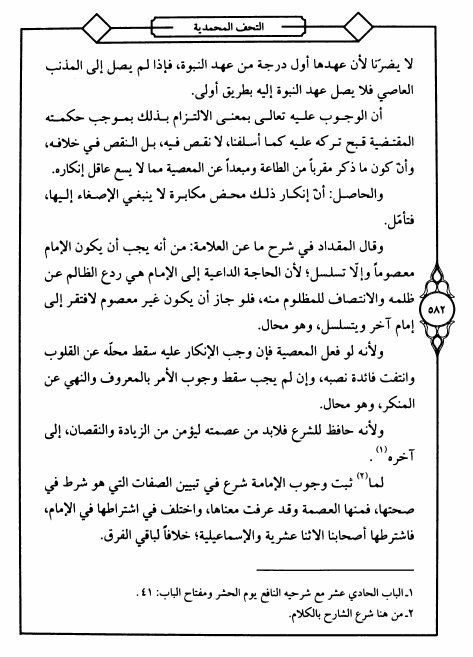 التحف المحمدية
لا يضرّنا لأن عهدها أول درجة من عهد النبوة، فإذا لم يصل إلى المذنب
العاصي فلا يصل عهد النبوة إليه بطريق أولى.
أن الوجوب عليه تعالى بمعنى الالتزام بذلك بموجب حكمته
المقتضية قبح تركه عليه كما أسلفنا، لا نقص فيه، بل النقص في خلافه،
وأنّ كون ما ذكر مقرباً من الطاعة ومبعداً عن المعصية مما لا يسع عاقل إنكاره.
والحاصل: أنّ إنكار ذلك محض مكابرة لا ينبغي الإصغاء إليها،
فتأمّل.
وقال المقداد في شرح ما عن العلامة: من أنه يجب أن يكون الإمام
معصوماً وإلّا تسلسل؛ لأن الحاجة الداعية إلى الإمام هي ردع الظالم عن
ظلمه والانتصاف للمظلوم منه، فلو جاز أن يكون غير معصوم لافتقر إلى
إمام آخر ويتسلسل، وهو محال.
٥٨٢
ولأنه لو فعل المعصية فإن وجب الإنكار عليه سقط محلّه عن القلوب
وانتفت فائدة نصبه، وإن لم يجب سقط وجوب الأمر بالمعروف والنهي عن
المنكر، وهو محال.
ولأنه حافظ للشرع فلابد من عصمته ليؤمن من الزيادة والنقصان، إلى
آخره(١).
لما(٢) ثبت وجوب الإمامة شرع في تبيين الصفات التي هو شرط في
صحتها، فمنها العصمة وقد عرفت معناها، واختلف في اشتراطها في الإمام،
فاشترطها أصحابنا الاثنا عشرية والإسماعيلية؛ خلافاً لباقي الفرق.
١ـ الباب الحادي عشر مع شرحيه النافع يوم الحشر ومفتاح الباب: ٤١.
٢ـ من هنا شرع الشارح بالكلام.